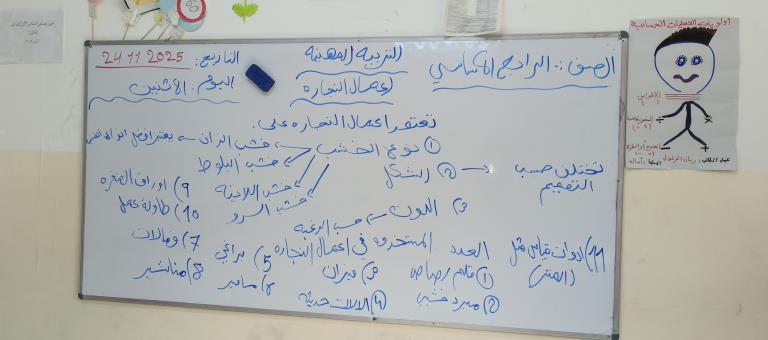 الصف: الرابع الأساسي
التربية المهنية
التاريخ: 24 11 2025
أعمال النجارة
اليوم: الأثنين
تعتمد اعمال النجارة على:
① نوع الخشب ← خشب الزان ← يعتبر افضل انواع
خشب البلوط
خشب اللاتيه
خشب السرو
تختلف حسب التصميم
② الشكل
③ اللون ← حسب الرغبة
العدد المستخدمة في اعمال النجاره
① قلم رصاص
② مبرد خشب
③ ميزان
④ الالات حديثة
5) براغي
6) مسامير
7) وصالات
8) مناشير
9) اوراق الصنفره
10) طاولة عمل
11) ادوات قياس مثل (المتر)
أولويات العمليات الحسابية
الأقواس